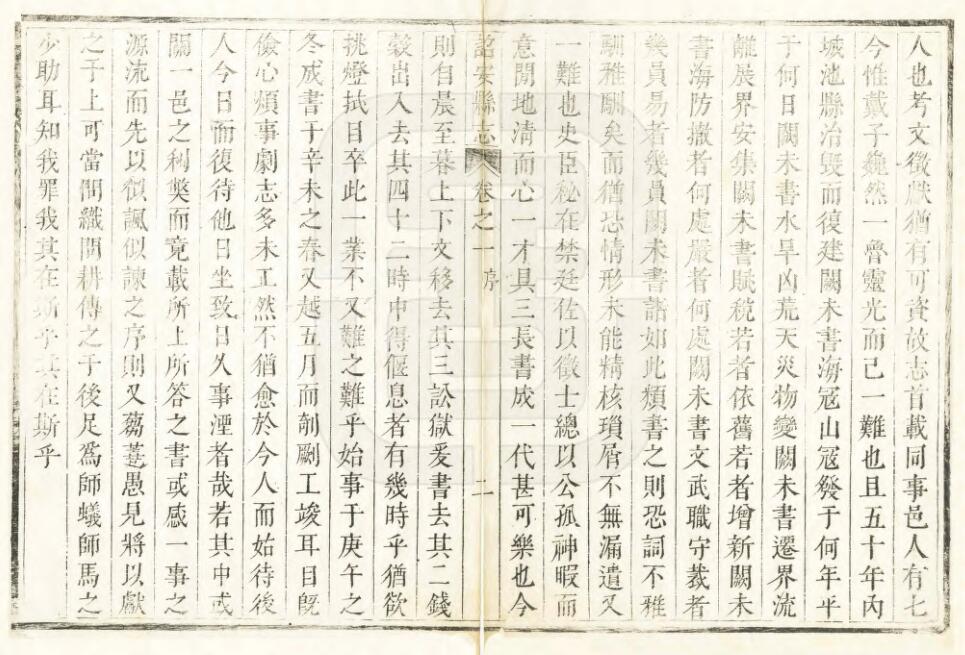 人也考文徵獻猶有可資故志首載同事邑人有七
今惟戴子巍然一魯靈光而已一難也且五十年內
城池縣冶毁而復建闕未書海冦山冦發于何年平
于何日闕未書水旱凶荒天災物變闕未書遷界流
離展界安集闕未書賦稅若者依舊若者增新闕未
書海防撤者何處嚴者何處闕未書文武職守裁者
幾員易者幾員闕未書諸如此類書之則恐詞不雅
馴雅馴矣而猶恐情形未能精核瑣屑不無漏遺又
一難也史臣秘在禁廷佐以徵士總以公孤神暇而
意閒地清而心一才具三長書成一代甚可樂也今
詔安縣志 卷之一 序 二
則自晨至暮上下文移去其三訟獄爰書去其二錢
榖出入去其四十二時中得偃息者有幾時乎猶欲
挑燈拭目卒此一業不又難之難乎始事于庚午之
冬成書于辛未之春又越五月而剞劂工竣耳目旣
儉心煩事劇志多未工然不猶愈於今人而姑待後
人今日而復待他日坐致日久事湮者哉若其中或
關一邑之利獘而竟載所上所答之書或感一事之
源流而先以似諷似諫之序則又蒭蕘愚見將以獻
之于上可當問織問耕傳之于後足爲師蟻師馬之
少助耳知我罪我其在斯乎其在斯乎